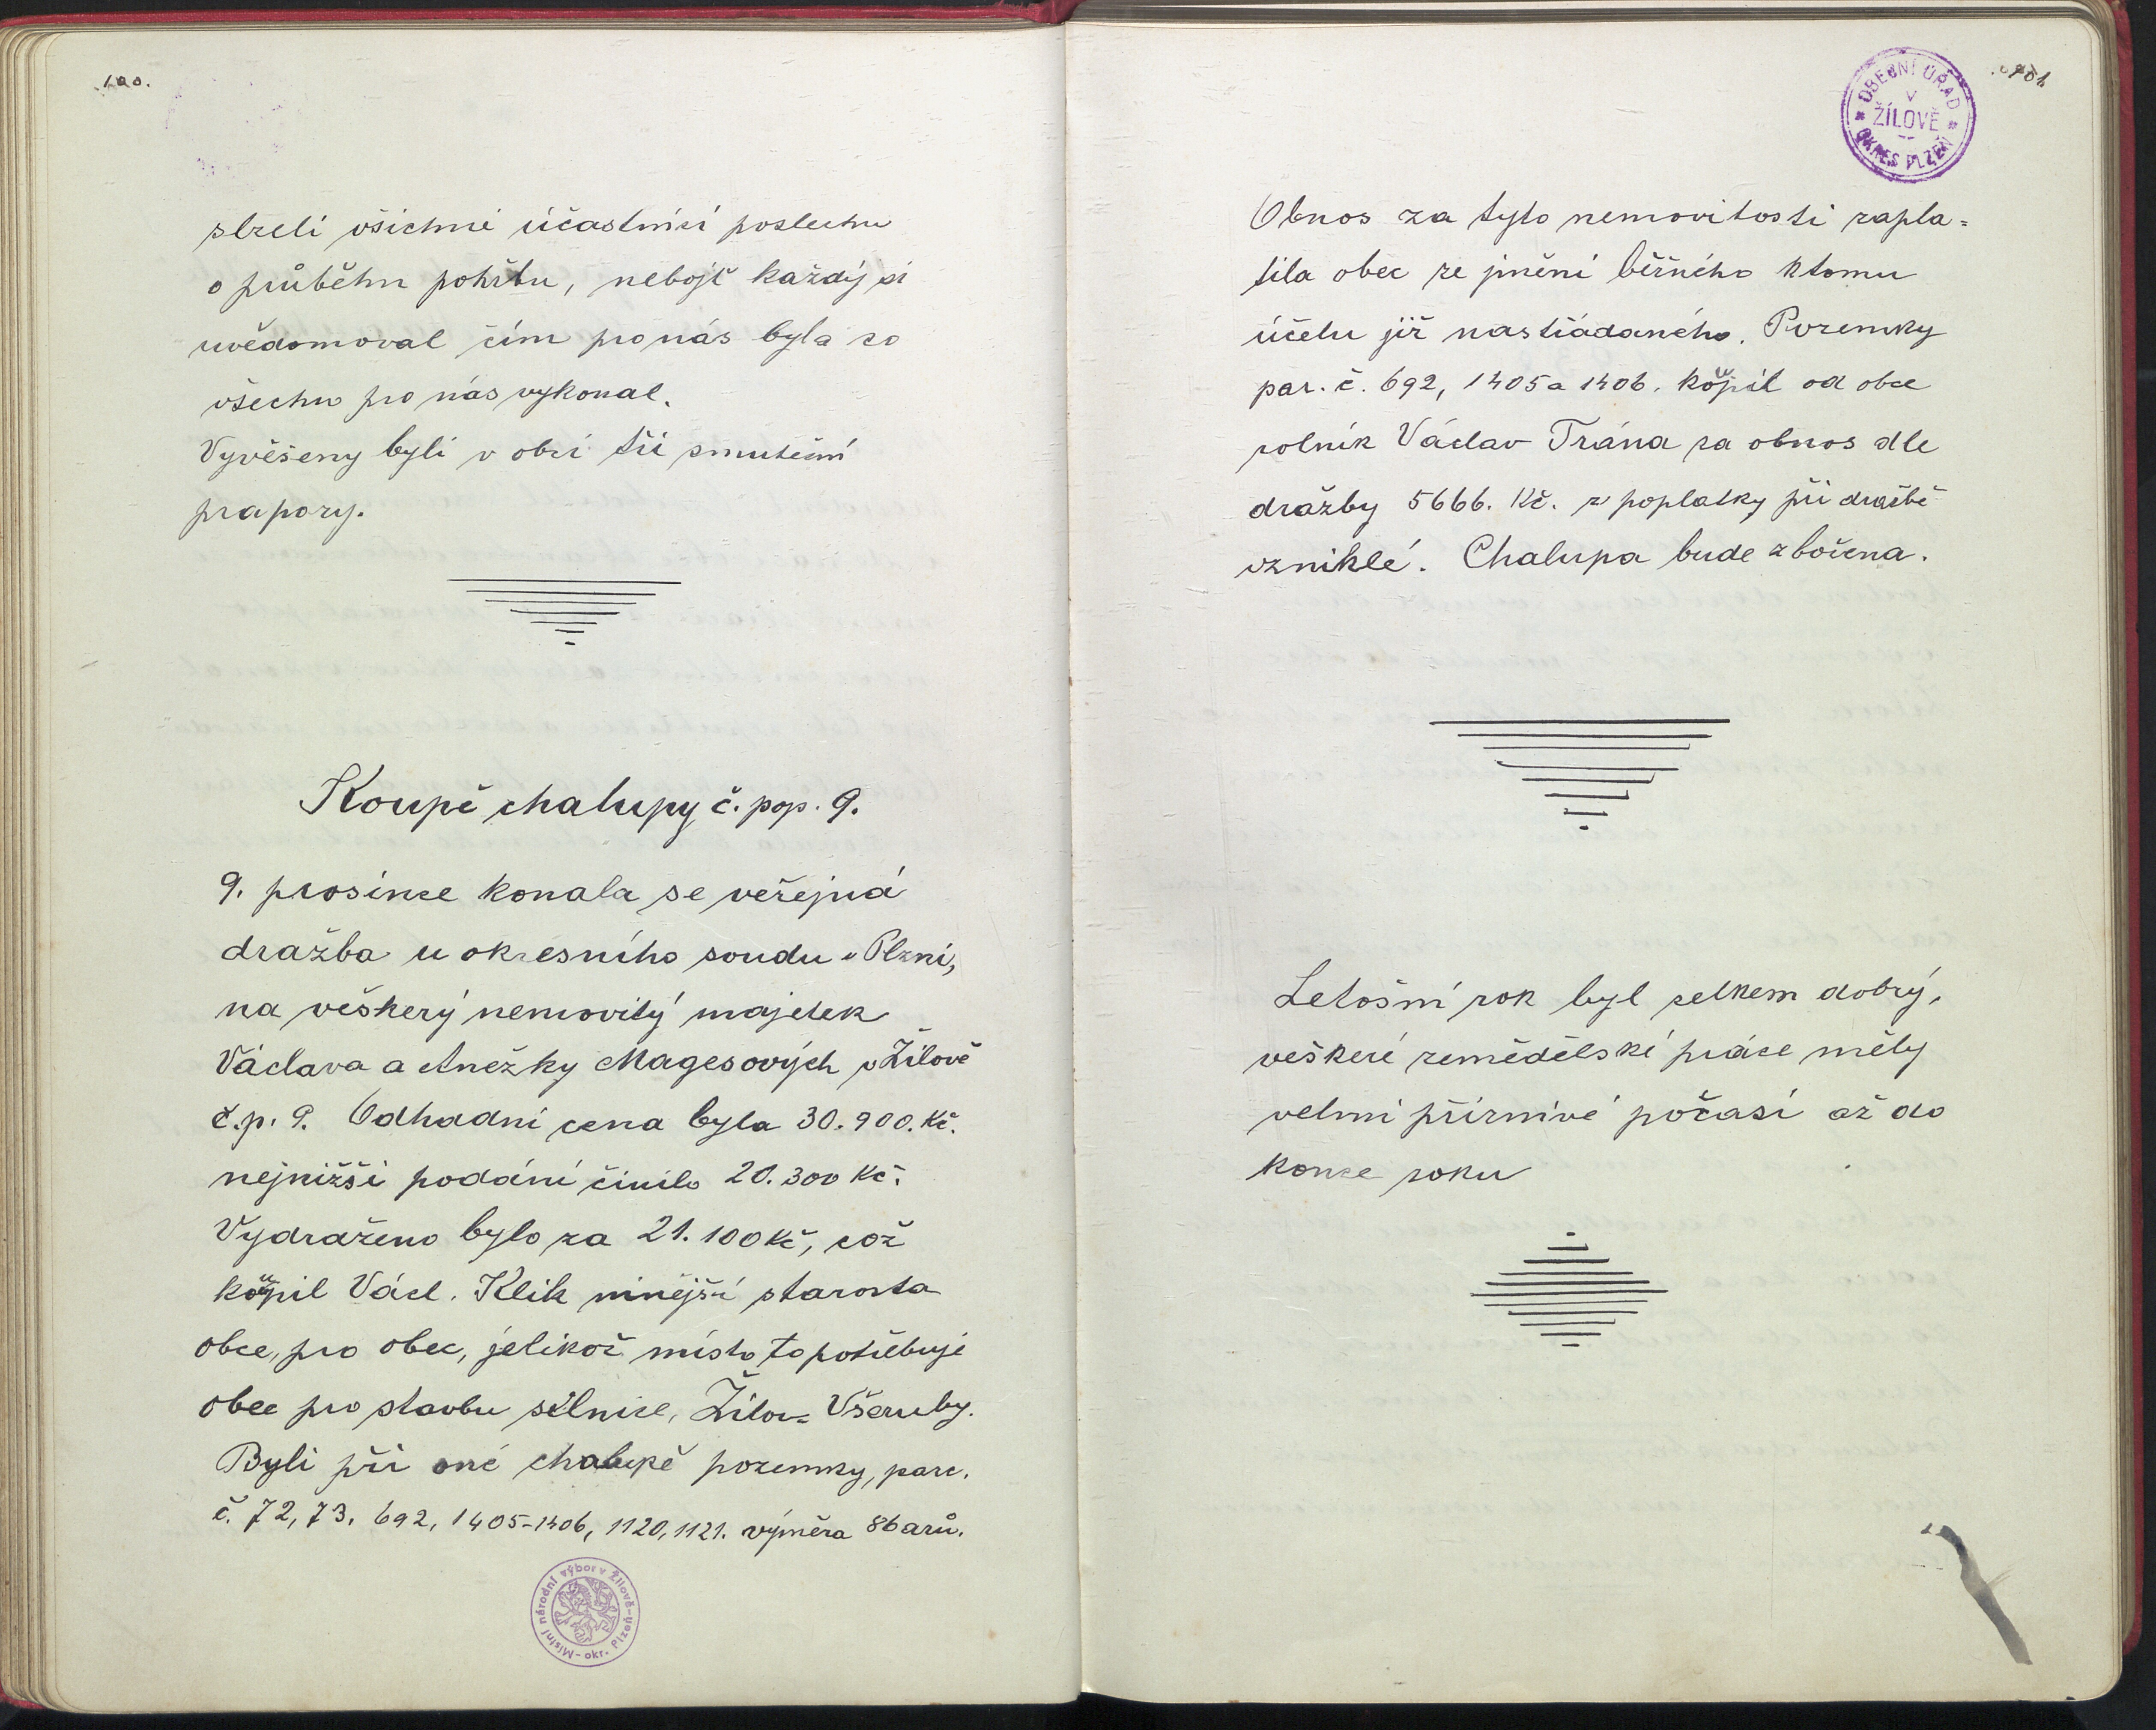 100.
slzeli všichni účastníci poslechu
o průběhu pohřbu, neboјť každý si
uvědomoval čím pro nás byl a co
všechno pro nás vykonal.
Vyvěšeny byli v obci tři smuteční
prapory.
Koupě chalupy č. pop. 9.
9. prosince konala se veřejná
dražba u okresního soudu v Plzni,
na veškerý nemovitý majetek
Václava a Anežky Magesových v Žilově
č.p. 9. Odhadní cena byla 30.900. Kč.
nejnižší podání činilo 20.300 Kč.
Vydraženo bylo za 21.100 Kč, což
koupil Václ. Klik ninější starosta
obce, pro obec, jelikož místo to potřebuje
obec pro stavbu silnice, Žilov = Všeruby.
Byli při oné chalupě pozemky, parc.
č. 72, 73, 692, 1405-1406, 1120, 1121. výměra 86 arů.
Místní národní výbor v Žilově - okr. Plzeň -
101.
OBECNÍ ÚŘAD
V
ŽÍLOVĚ
OKRES PLZEŇ
Obnos za tyto nemovitosti zapla=
tila obec ze jmění běžného k tomu
účelu již nastřádaného. Pozemky
par. č. 692, 1405 a 1406. koupil od obce
rolník Václav Trána za obnos dle
dražby 5666. Kč. z poplatky při dražbě
vzniklé. Chalupa bude zbořena.
Letošní rok byl celkem dobrý,
veškeré zemědělské práce měly
velmi příznivé počasí až do
konce roku